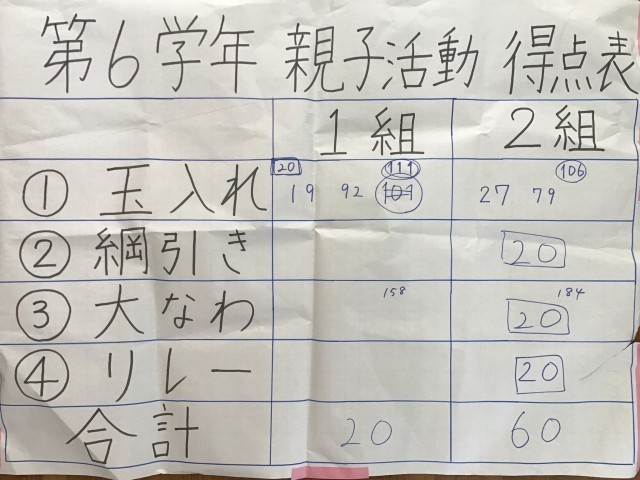 第6学年 親子活動 得点表
1組 2組
① 玉入れ 20 19 92 101 111 27 79 106
② 綱引き 20
③ 大なわ 158 184 20
④ リレー 20
合計 20 60